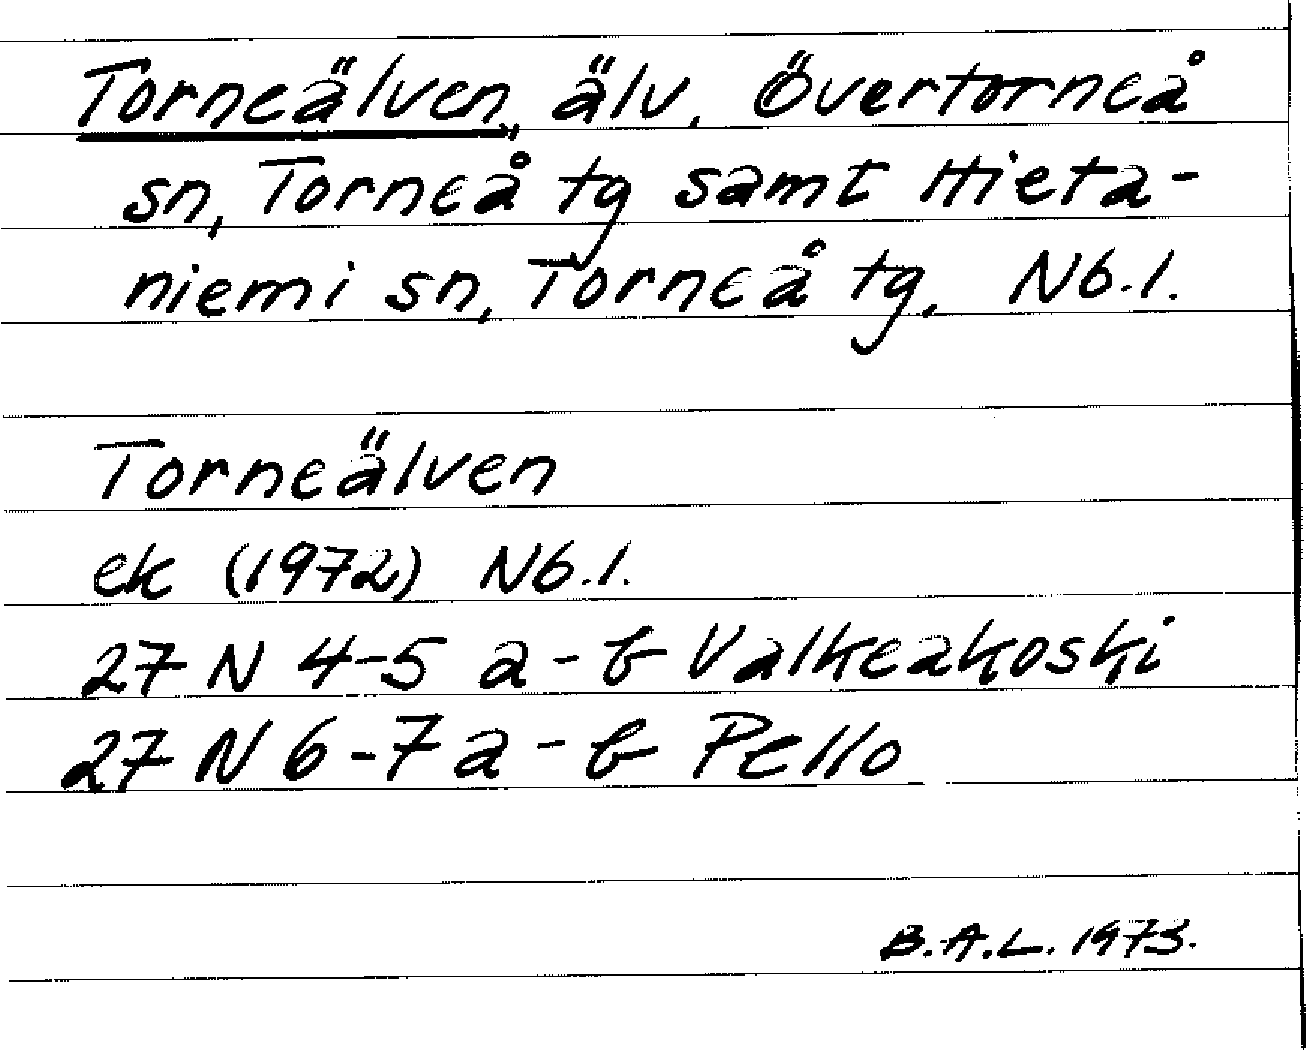 Torneälven, älv, Övertorneå
sn, Torneå tg samt Hieta-
niemi sn, Torneå tg, Nb.l.
Torneälven
ek (1972) Nb.l.
27 N 4-5 a-b Valkeakoski
27 N 6-7 a-b Pello
B.A.L. 1973.